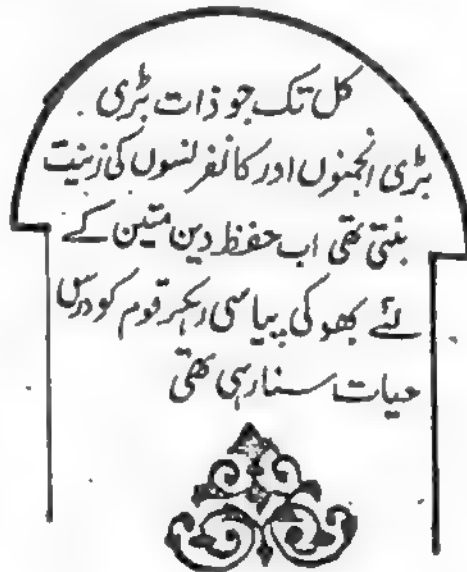 کل تک جو ذات بڑی
بڑی انجمنوں اور کانفرنسوں کی زینت
بنتی تھی اب حفظ دین متین کے
لئے بھوکی پیاسی رہکر قوم کو درس
حیات سنا رہی تھی